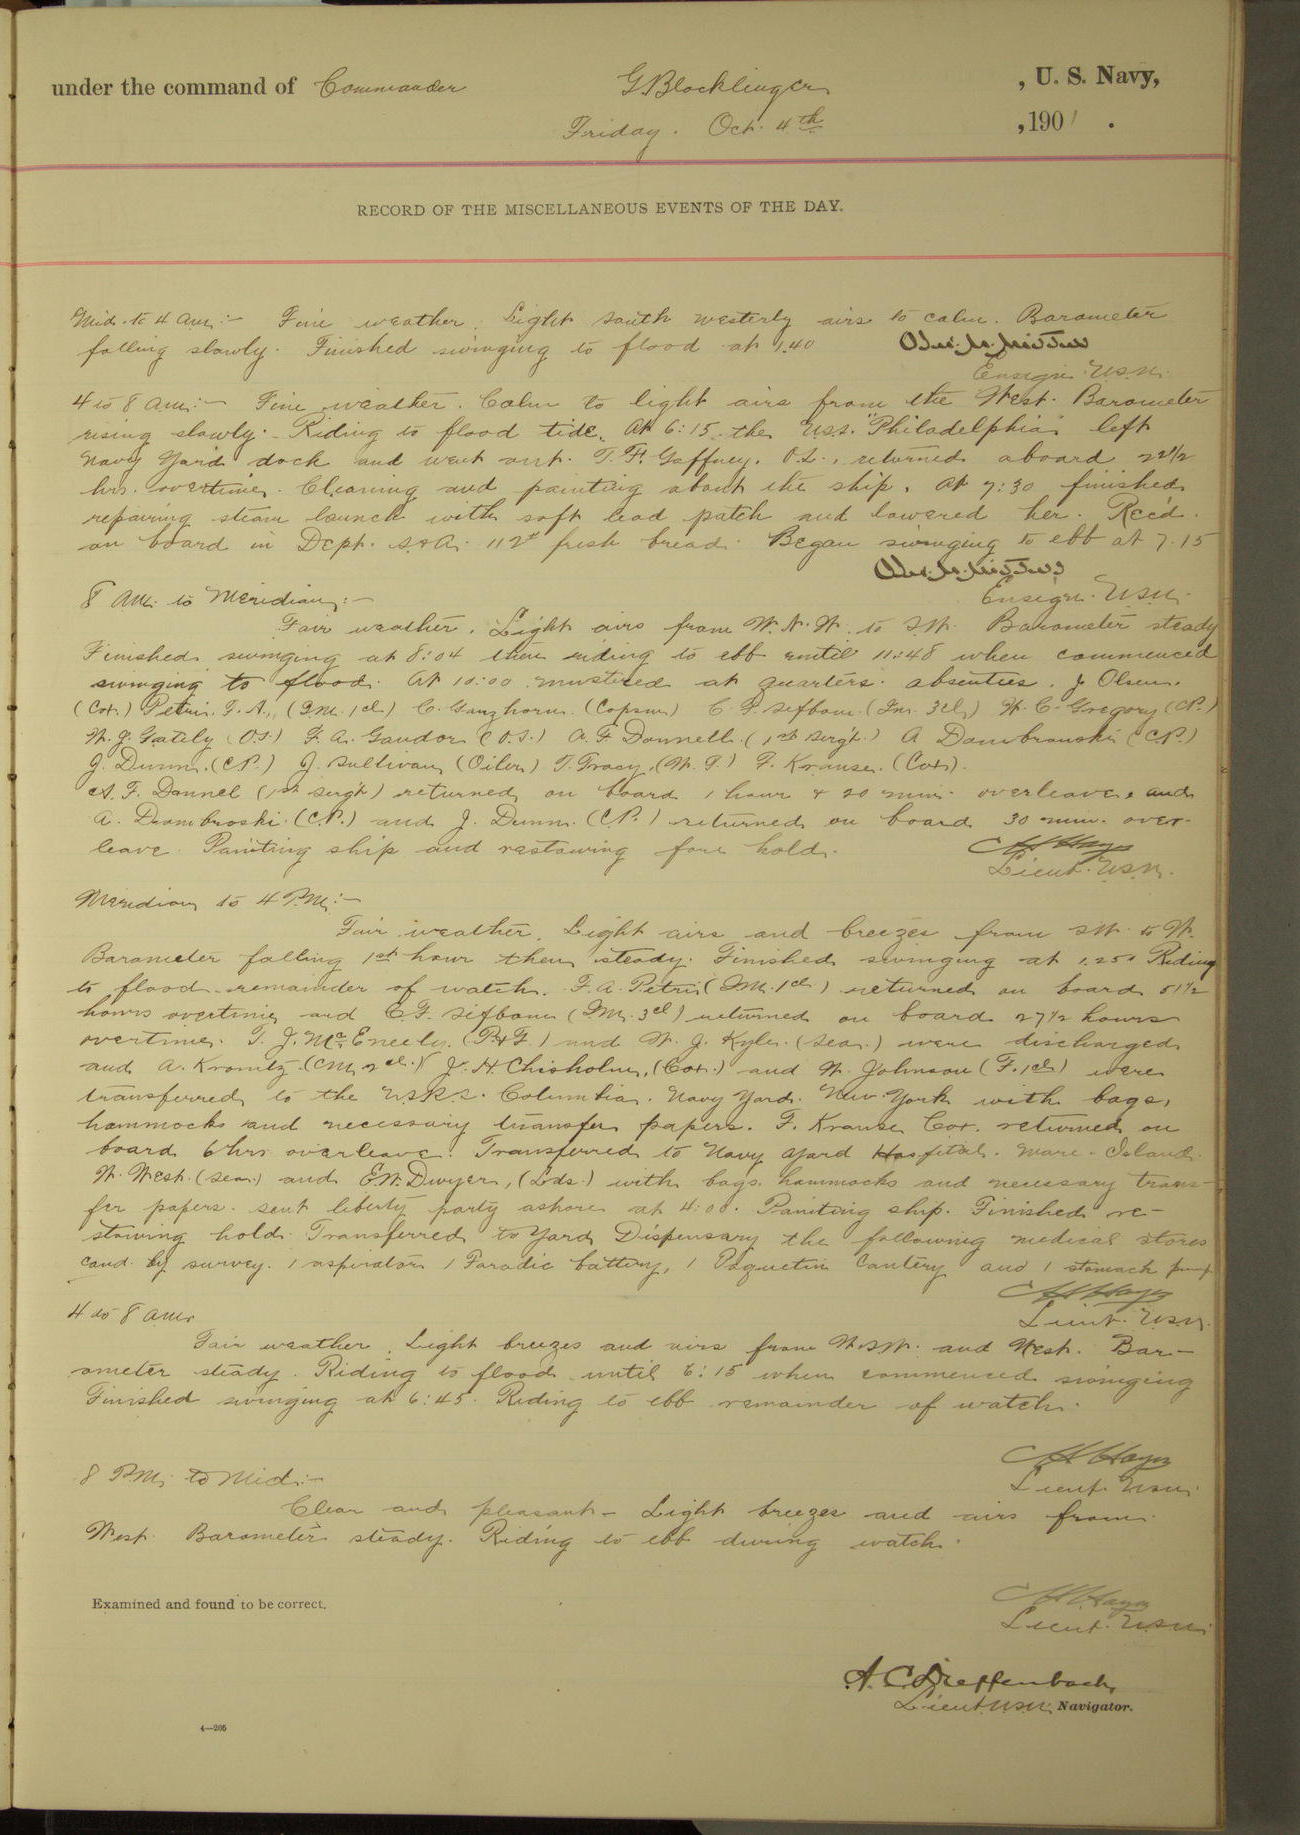 under the command of Commander G Blocklinger , U. S. Navy,
Friday. Oct. 4th , 1901 .
RECORD OF THE MISCELLANEOUS EVENTS OF THE DAY.
Mid. to 4 am:- Fine weather. Light south westerly airs to calm. Barometer
falling slowly. Finished swinging to flood at 1.40
Ensign. U.S.N.
4 to 8 am:- Fine weather. Calm to light airs from the West. Barometer
rising slowly. Riding to flood tide. At 6:15 the U.S.S. "Philadelphia" left
Navy Yard dock and went out. T. F. Gaffney, O.S., returned aboard 22½
hrs. overtime. Cleaning and painting about the ship. At 7:30 finished
repairing steam launch with soft lead patch and lowered her. Rec'd.
on board in Dept. S&A. 112# fresh bread. Began swinging to ebb at 7.15
Ensign. U.S.N.
8 AM. to Meridian:-
Fair weather. Light airs from W.N.W. to SW. Barometer steady
Finished swinging at 8:04 then riding to ebb until 11:48 when commenced
swinging to flood. At 10:00 mustered at quarters. absentees. J Olsen.
(Cox.) Petri. F. A., (G.M. 1cl) C. Ganzhorn. (Capson) C. F. Sifbom. (G.M. 3cl.) W. C. Gregory (C.P.)
W. J. Gately (O.S.) F. A. Gandor (O.S.) A. F Donnell. (1st Serg't.) A Dombrouski (C.P.)
J. Dunn. (C.P.) J. Sullivan, (Oiler) T. Tracy, (W.T.) F. Krause. (Cox).
A. F. Donnel (1st Serg't) returned on board 1 hour & 20 min. overleave, and
A. Dombroski. (C.P.) and J. Dunn. (C.P.) returned on board 30 min. over-
leave. Painting ship and restowing fore hold.
Lieut. U.S.N.
Meridian to 4 P.M.:-
Fair weather. Light airs and breezes from SW. to W.
Barometer falling 1st hour then steady. Finished swinging at 1.250 Riding
to flood remainder of watch. F. A. Petri (G.M. 1cl) returned on board 51½
hours overtime and C.F. Sifbom (G.M. 3cl) returned on board 27½ hours
overtime. T. J. McEneely. (P.&F.) and W. J. Kyle. (Sea.) were discharged
and A. Kronitz. (CM 2cl.) J. H. Chisholm, (Cox.) and W. Johnson (F. 1cl) were
transferred to the U.S.R.S. Columbia. Navy Yard. New York with bags,
hammocks and necessary transfer papers. F. Krause Cox. returned on
board 6 hrs overleave. Transferred to Navy yard Hospital. Mare Island.
W. West. (Sea.) and E.W. Dwyer, (Lds.) with bags hammocks and necessary trans-
fer papers. Sent liberty party ashore at 4:00. Painting ship. Finished re-
stowing hold. Transferred to Yard Dispensary the following medical stores
cond. by survey. 1 aspirator 1 Faradic battery, 1 Paquetin Cautery and 1 stomach pump
Lieut. U.S.N.
4 to 8 a.m.
Fair weather. Light breezes and airs from W.S.W. and West. Bar-
ometer steady. Riding to flood until 6:15 when commenced swinging
Finished swinging at 6:45. Riding to ebb remainder of watch.
Lieut. U.S.N.
8 P.M. to Mid:-
Clear and pleasant - Light breezes and airs from
West. Barometer steady. Riding to ebb during watch.
Examined and found to be correct.
Lieut. U.S.N.
A. C. Dieffenbach,
Lieut. U.S.N. Navigator.
4—205